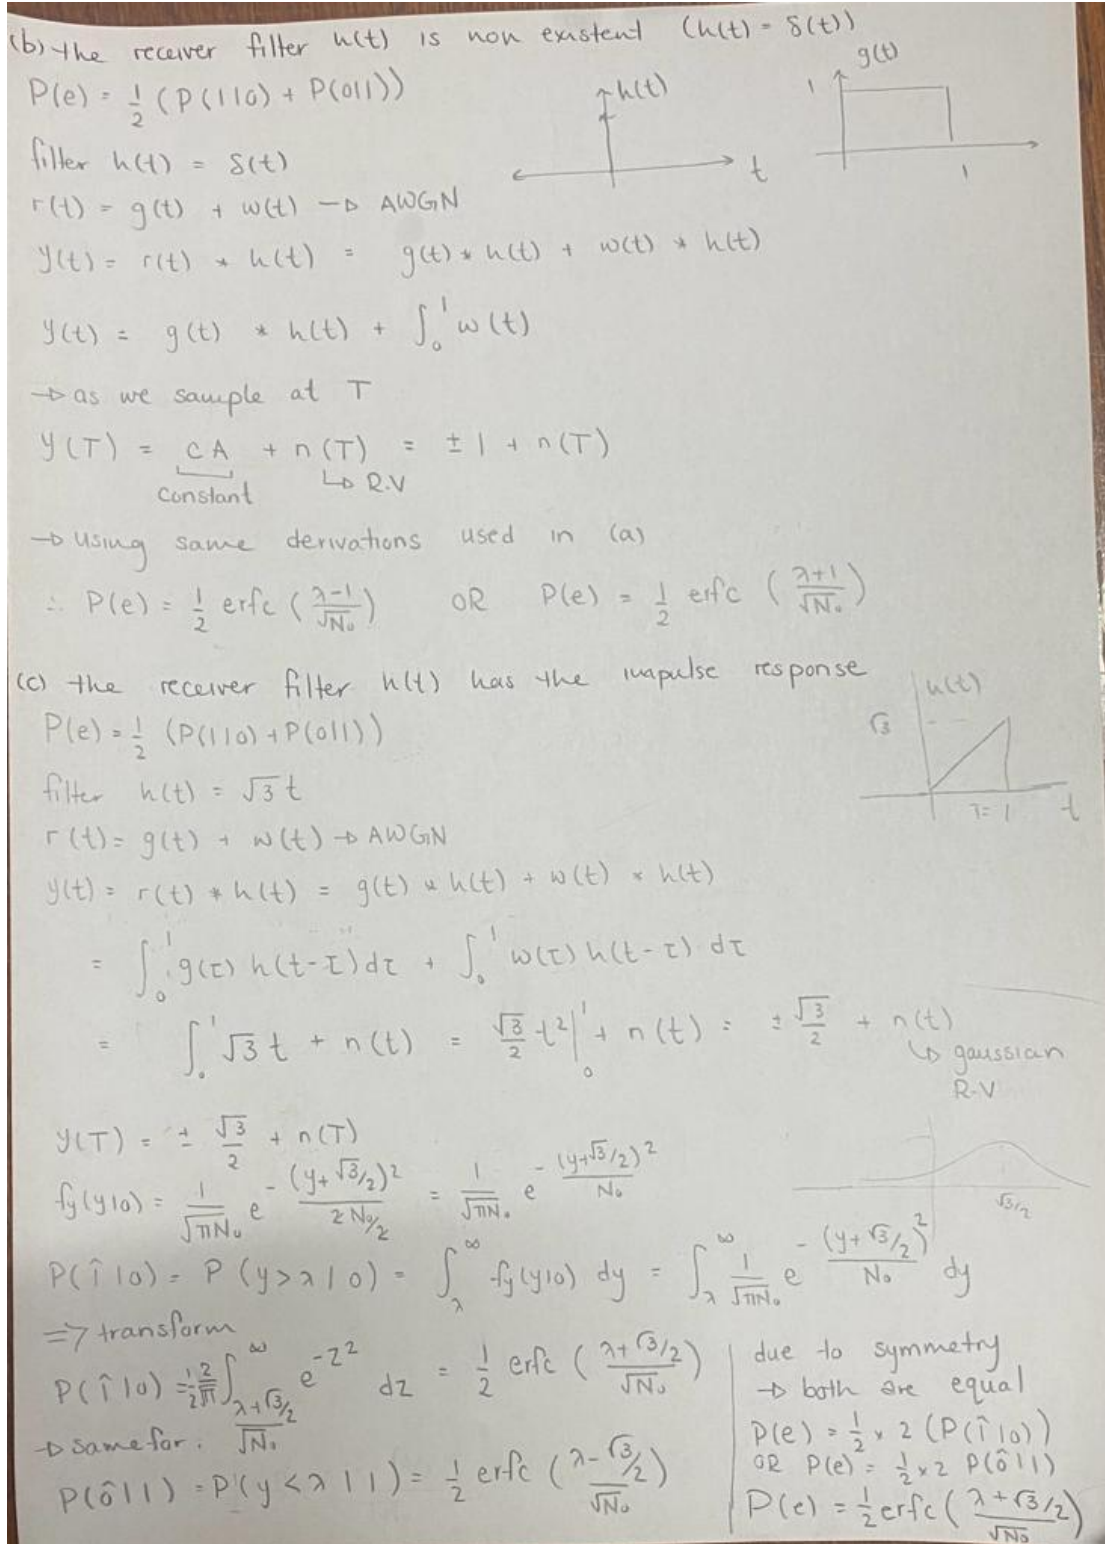 (b) the receiver filter h(t) is non existent (h(t) = δ(t))
P(e) = 1/2 (P(1|0) + P(0|1))
h(t)
t
g(t)
1
1
filter h(t) = δ(t)
r(t) = g(t) + w(t) → AWGN
y(t) = r(t) * h(t) = g(t) * h(t) + w(t) * h(t)
y(t) = g(t) * h(t) + ∫₀¹ w(t)
→ as we sample at T
y(T) = CA + n(T) = ± 1 + n(T)
constant ↳ R.V
→ using same derivations used in (a)
∴ P(e) = 1/2 erfc ((λ-1)/√N₀) OR P(e) = 1/2 erfc ((λ+1)/√N₀)
(c) the receiver filter h(t) has the impulse response
h(t)
√3
T=1
t
P(e) = 1/2 (P(1|0) + P(0|1))
filter h(t) = √3 t
r(t) = g(t) + w(t) → AWGN
y(t) = r(t) * h(t) = g(t) * h(t) + w(t) * h(t)
= ∫₀¹ g(τ) h(t-τ) dτ + ∫₀¹ w(τ) h(t-τ) dτ
= ∫₀¹ √3 t + n(t) = √3/2 t² |₀¹ + n(t) = ± √3/2 + n(t)
↳ gaussian
R.V
y(T) = ± √3/2 + n(T)
√3/2
fy(y|0) = 1/√πN₀ e^-(y+√3/2)²/(2 N₀/2) = 1/√πN₀ e^-(y+√3/2)²/N₀
P(1̂|0) = P(y>λ|0) = ∫_λ^∞ fy(y|0) dy = ∫_λ^∞ 1/√πN₀ e^-(y+√3/2)²/N₀ dy
=> transform
P(1̂|0) = 1/2 2/√π ∫_((λ+√3/2)/√N₀)^∞ e^-z² dz = 1/2 erfc ((λ+√3/2)/√N₀)
→ same for.
P(0̂|1) = P(y<λ|1) = 1/2 erfc ((λ-√3/2)/√N₀)
due to symmetry
→ both are equal
P(e) = 1/2 × 2 (P(1̂|0))
OR P(e) = 1/2 × 2 P(0̂|1)
P(e) = 1/2 erfc ((λ+√3/2)/√N₀)